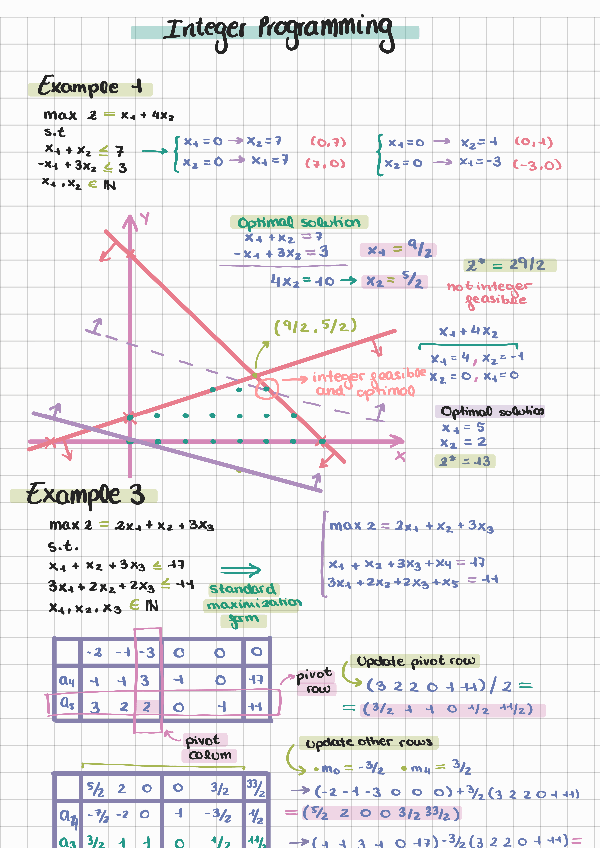 Integer Programming
Example 1
max z = x₁ + 4x₂
s.t
x₁ + x₂ ≤ 7
-x₁ + 3x₂ ≤ 3
x₁, x₂ ∈ IN
→ { x₁ = 0 → x₂ = 7 (0,7)
x₂ = 0 → x₁ = 7 (7,0)
{ x₁ = 0 → x₂ = 1 (0,1)
x₂ = 0 → x₁ = -3 (-3,0)
Optimal solution
x₁ + x₂ = 7
-x₁ + 3x₂ = 3
4x₂ = 10 → x₂ = 5/2
x₁ = 9/2
z* = 29/2
not integer
feasible
y
(9/2, 5/2)
integer feasible
and optimal
x
x₁ + 4x₂
x₁ = 4, x₂ = -1
x₂ = 0, x₁ = 0
Optimal solution
x₁ = 5
x₂ = 2
z* = 13
Example 3
max z = 2x₁ + x₂ + 3x₃
s.t.
x₁ + x₂ + 3x₃ ≤ 17
3x₁ + 2x₂ + 2x₃ ≤ 11
x₁, x₂, x₃ ∈ IN
⇒
standard
maximization
form
max z = 2x₁ + x₂ + 3x₃
x₁ + x₂ + 3x₃ + x₄ = 17
3x₁ + 2x₂ + 2x₃ + x₅ = 11
-2 -1 -3 0 0 0
a₄ 1 1 3 1 0 17
a₅ 3 2 2 0 1 11
pivot
row
pivot
colum
Update pivot row
(3 2 2 0 1 11) / 2 =
= (3/2 1 1 0 1/2 11/2)
5/2 2 0 0 3/2 33/2
a₄ -7/2 -2 0 1 -3/2 1/2
a₃ 3/2 1 1 0 1/2 11/2
Update other rows
• m₀ = -3/2 • m₄ = 3/2
→ (-2 -1 -3 0 0 0) + 3/2 (3 2 2 0 1 11)
= (5/2 2 0 0 3/2 33/2)
→ (1 1 3 1 0 17) - 3/2 (3 2 2 0 1 11) =